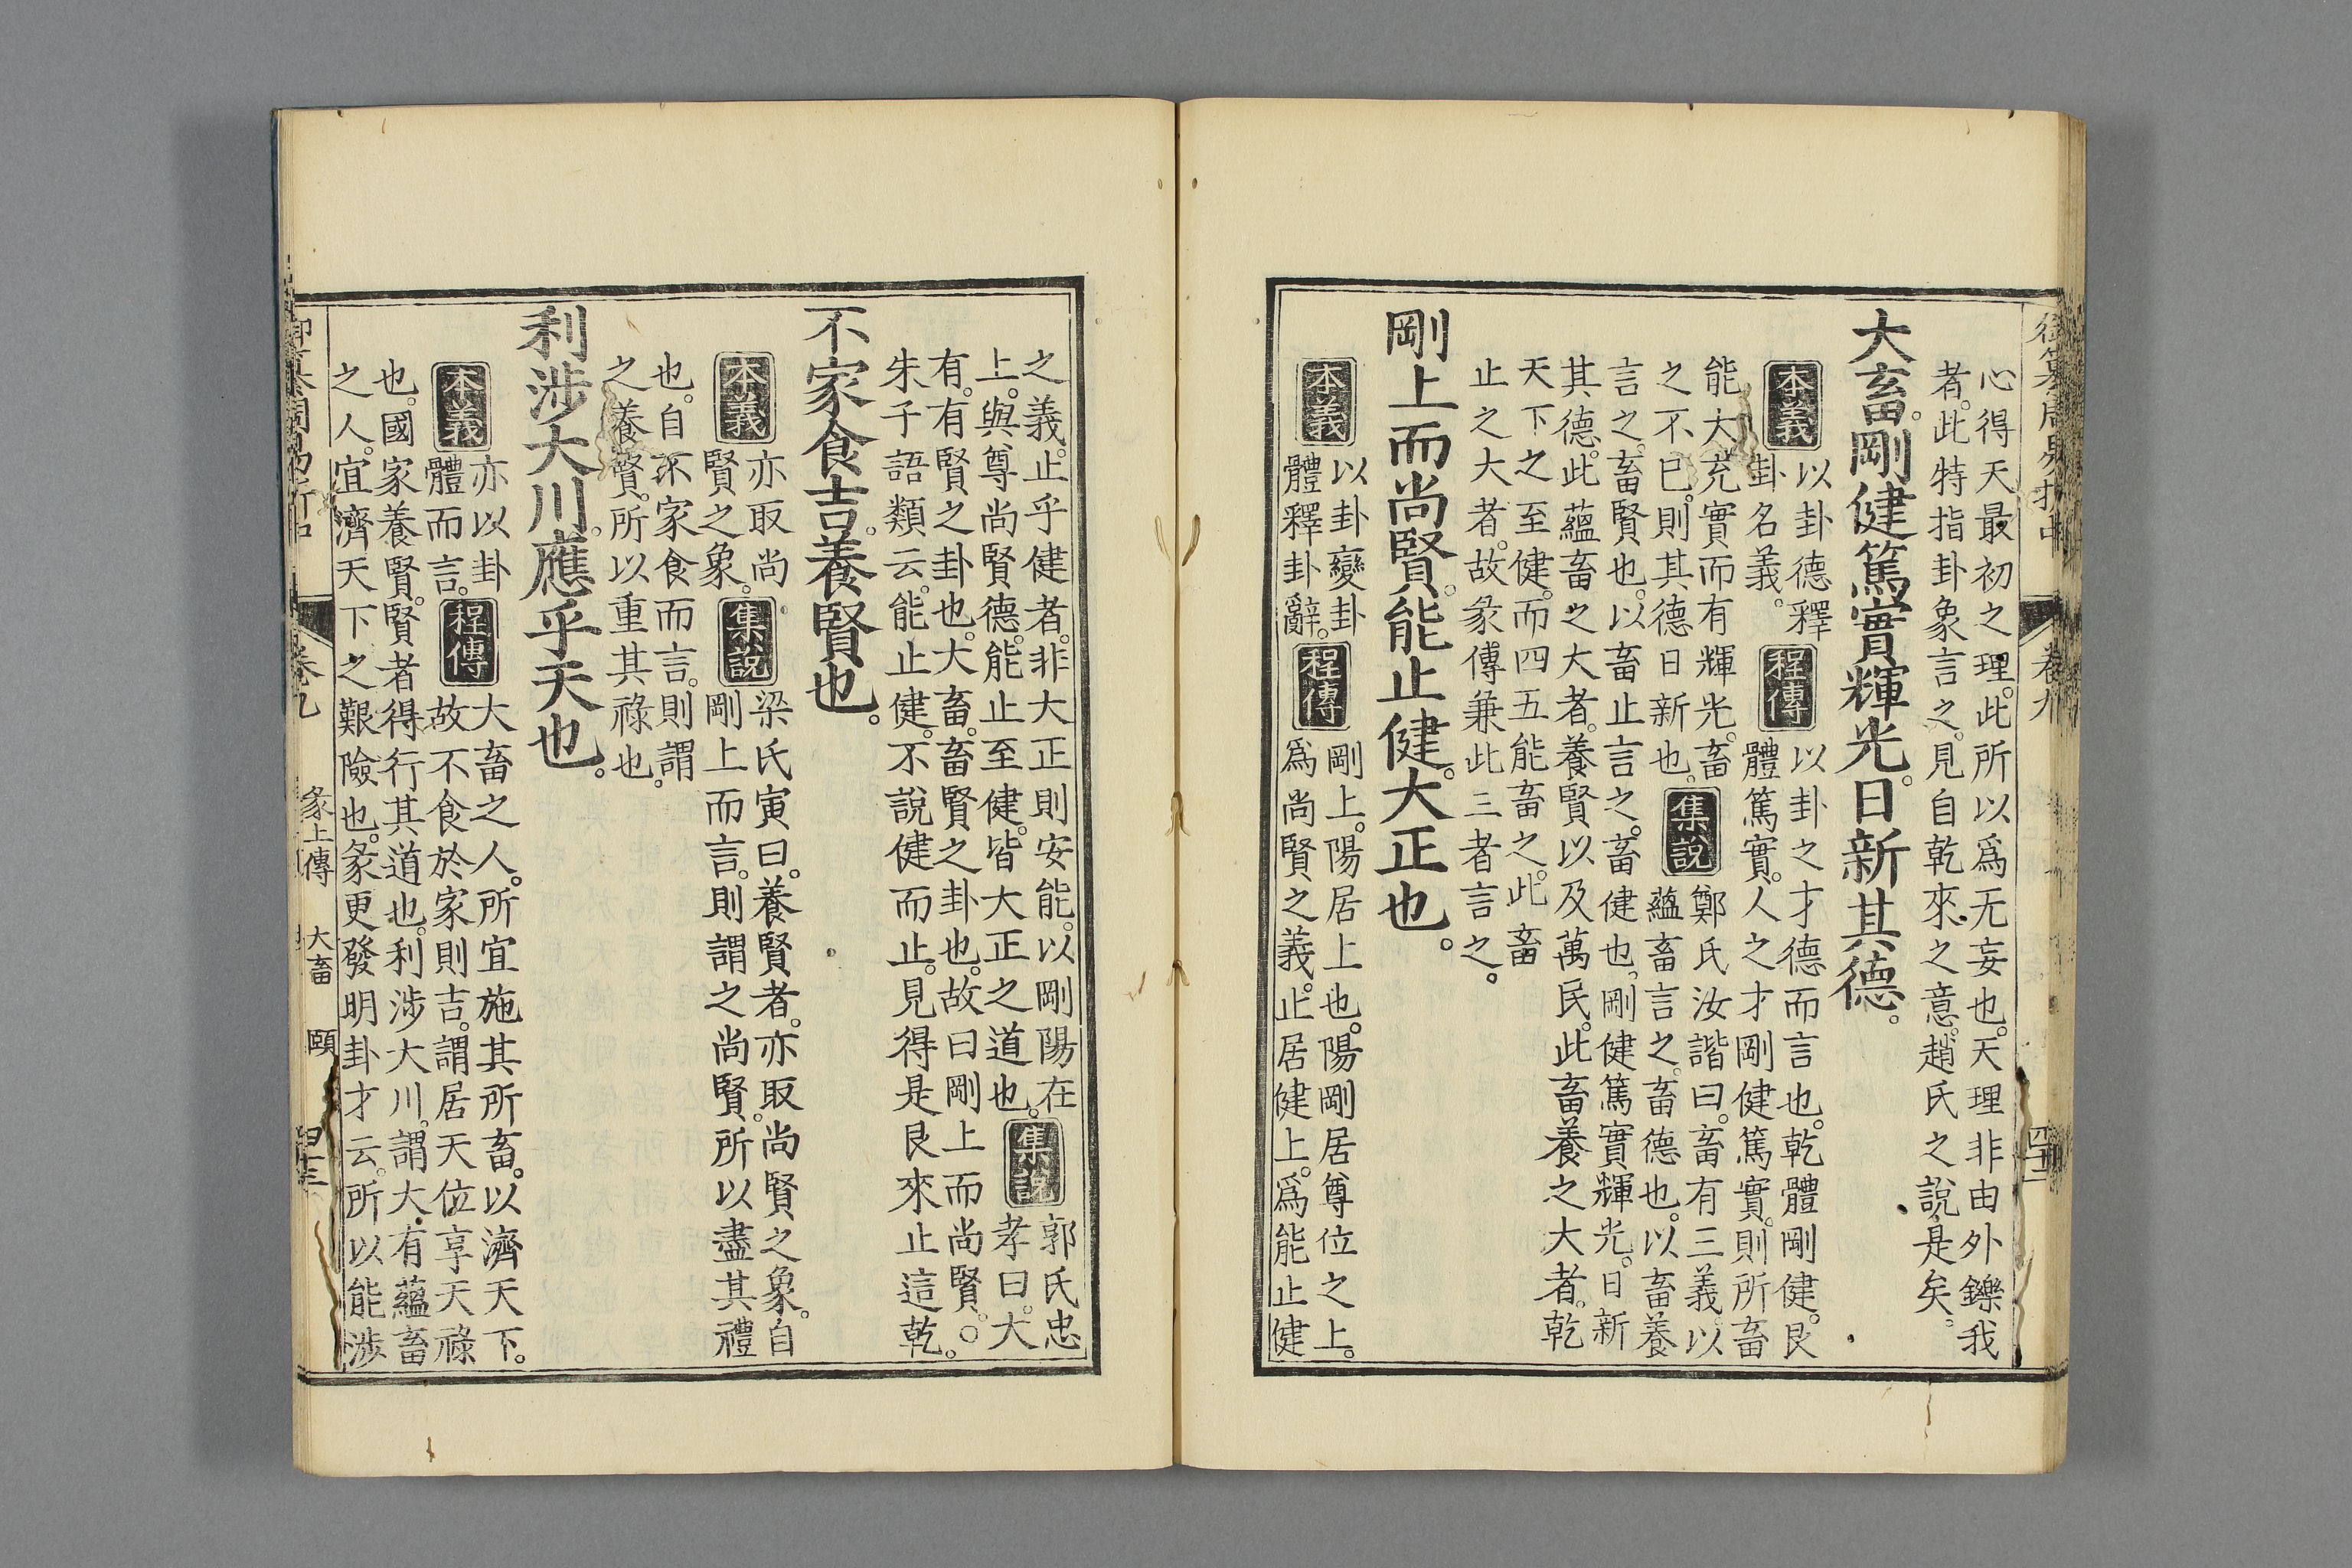 心得天最初之理。此所以爲无妄也。天理非由外鑠我
者。此特指卦象言之。見自乾來之意。趙氏之說是矣。
大畜。剛健篤實輝光。日新其德。
本義
以卦德釋
卦名義。
程傳
以卦之才德而言也。乾體剛健。艮
體篤實。人之才剛健篤實。則所畜
能大充實而有輝光。畜
之不已。則其德日新也。
集說
鄭氏汝諧曰。畜有三義。以
蘊畜言之。畜德也。以畜養
言之。畜賢也。以畜止言之。畜健也。剛健篤實輝光。日新
其德。此蘊畜之大者。養賢以及萬民。此畜養之大者。乾
天下之至健。而四五能畜之。此畜
止之大者。故彖傳兼此三者言之。
剛上而尚賢。能止健。大正也。
本義
以卦變卦
體釋卦辭。
程傳
剛上。陽居上也。陽剛居尊位之上。
爲尚賢之義。止居健上。爲能止健
之義。止乎健者。非大正則安能。以剛陽在
上。與尊尚賢德。能止至健。皆大正之道也。
集說
郭氏忠
孝曰。大
有。有賢之卦也。大畜。畜賢之卦也。故曰剛上而尚賢。○
朱子語類云。能止健。不說健而止。見得是艮來止這乾。
不家食吉。養賢也。
本義
亦取尚
賢之象。
集說
梁氏寅曰。養賢者。亦取尚賢之象。自
剛上而言。則謂之尚賢。所以盡其禮
也。自不家食而言。則謂
之養賢。所以重其祿也。
利涉大川。應乎天也。
本義
亦以卦
體而言。
程傳
大畜之人。所宜施其所畜。以濟天下。
故不食於家則吉。謂居天位享天祿
也。國家養賢。賢者得行其道也。利涉大川。謂大有蘊畜
之人。宜濟天下之艱險也。彖更發明卦才云。所以能涉
彖上傳 大畜 頤